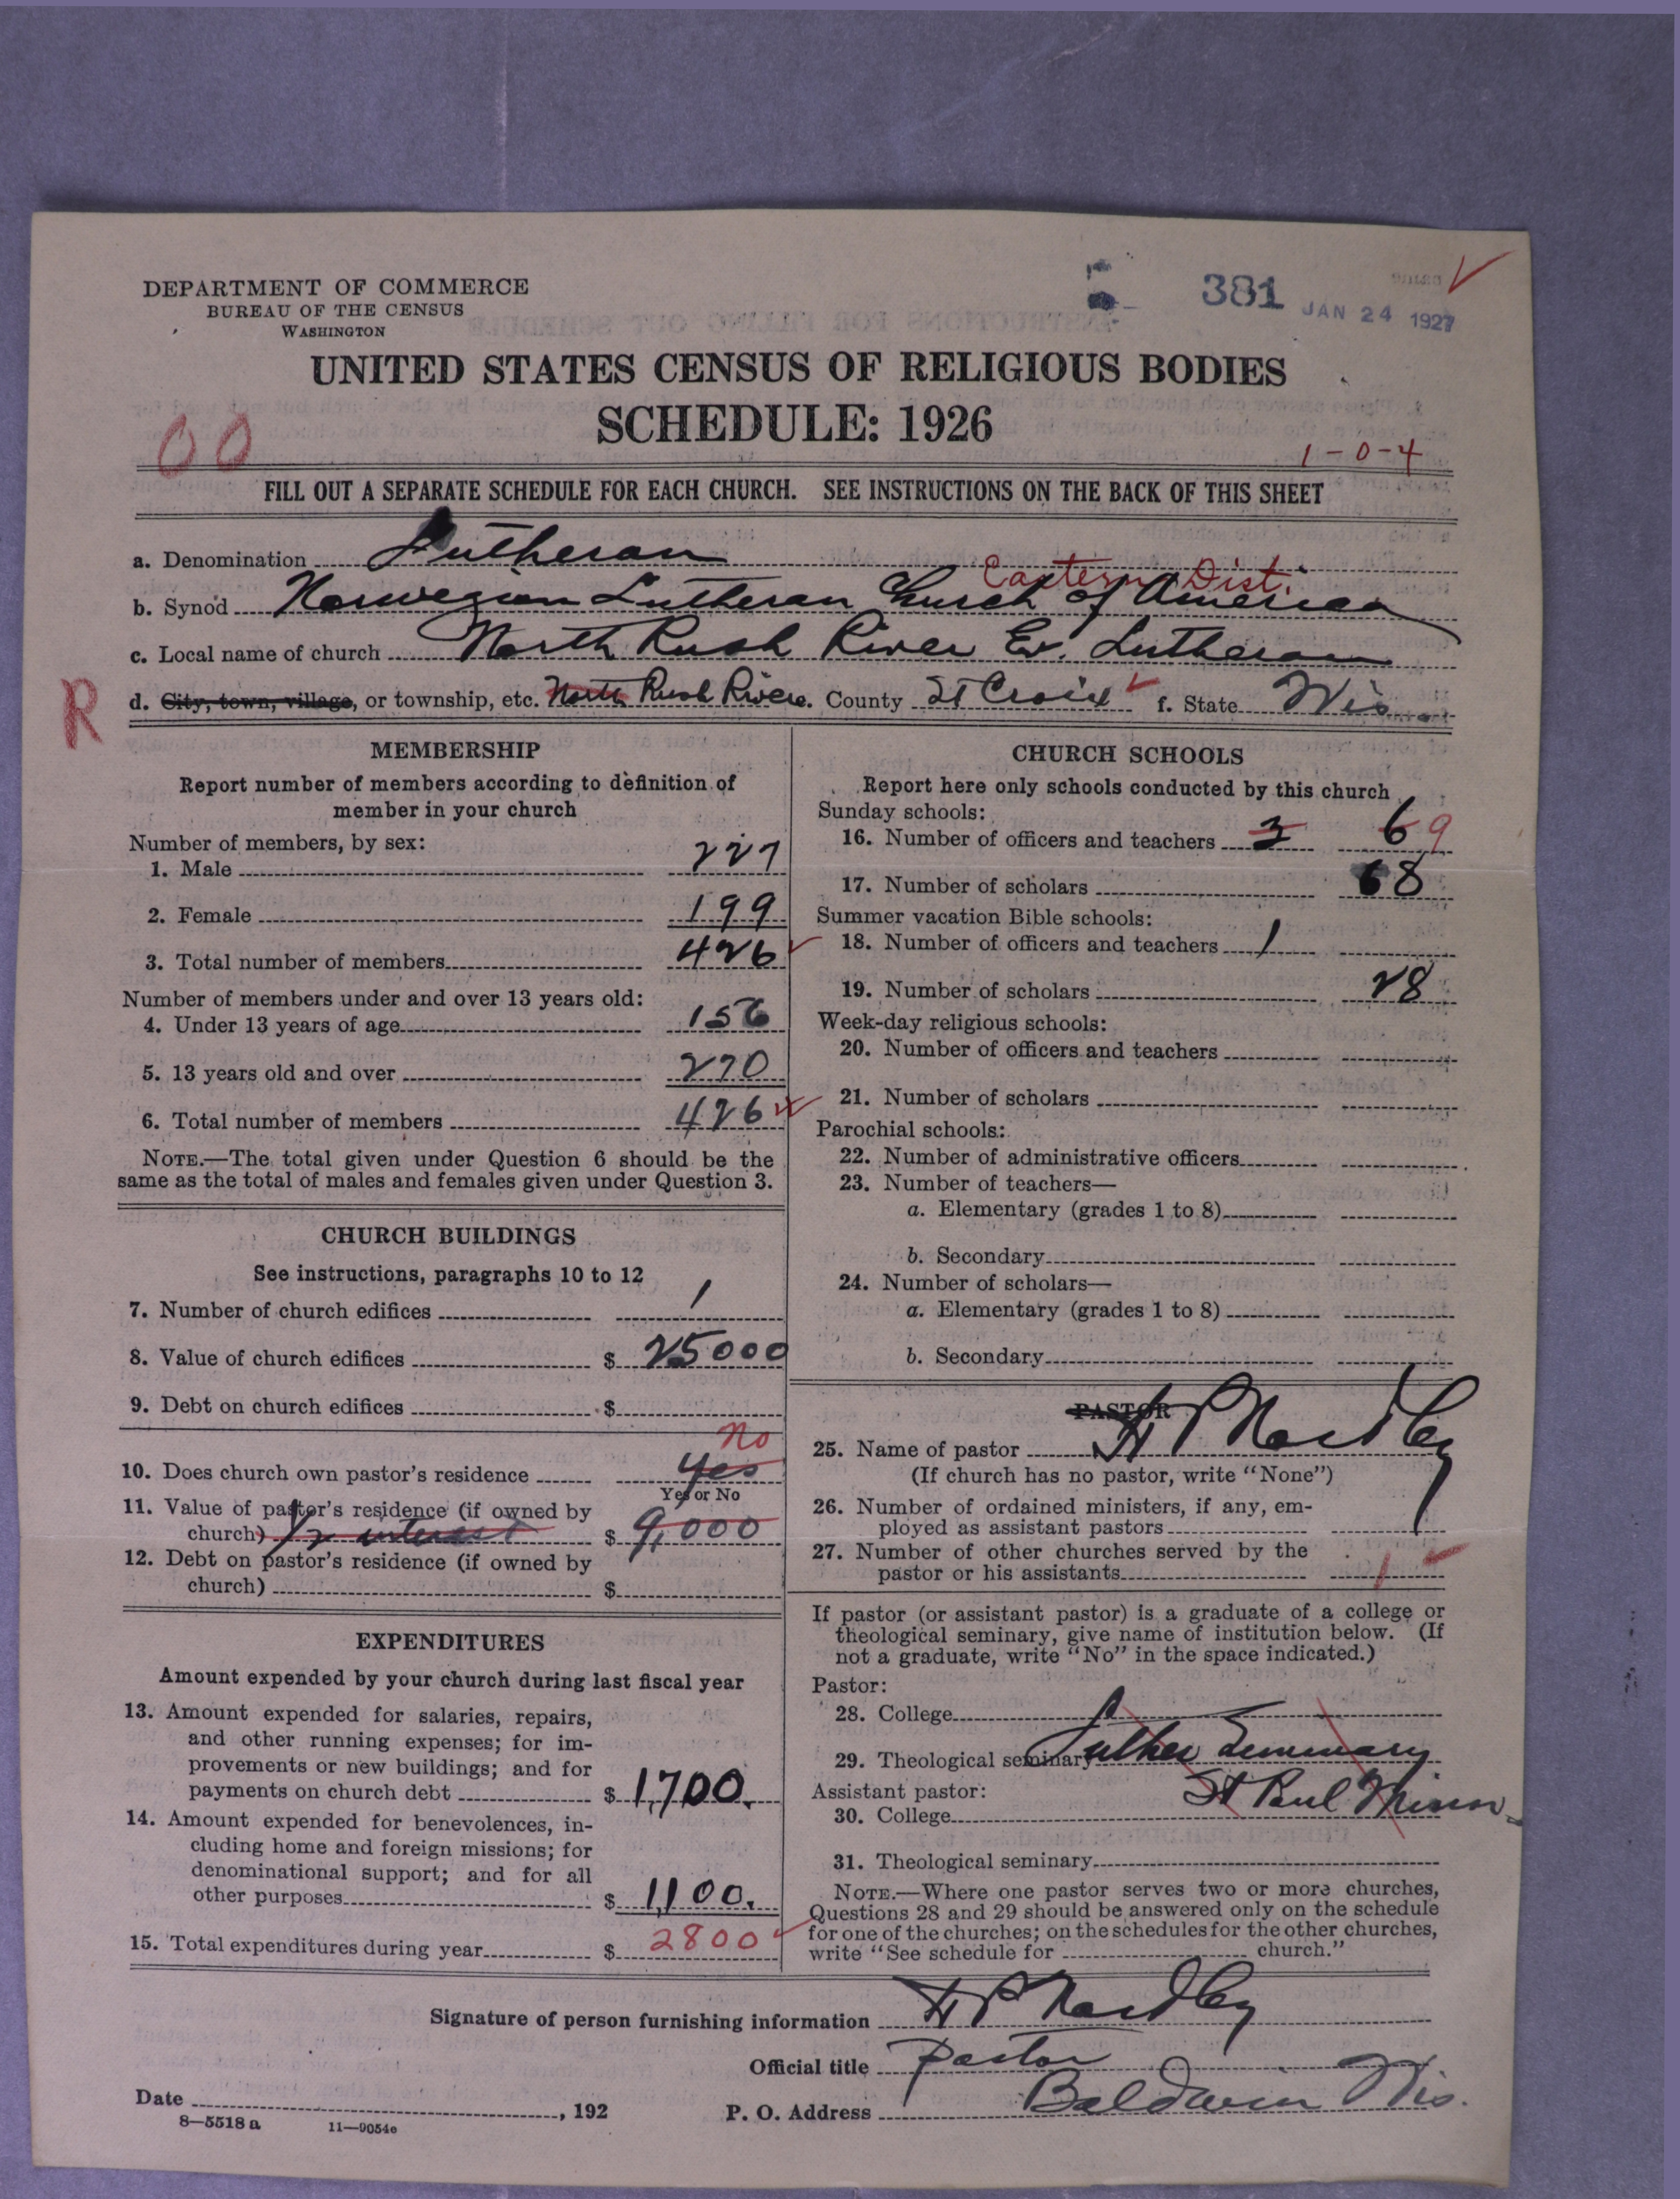 DEPARTMENT OF COMMERCE
BUREAU OF THE CENSUS
WASHINGTON
381 JAN 24 1927
UNITED STATES CENSUS OF RELIGIOUS BODIES
SCHEDULE: 1926
00
1-0-4
FILL OUT A SEPARATE SCHEDULE FOR EACH CHURCH. SEE INSTRUCTIONS ON THE BACK OF THIS SHEET
a. Denomination Lutheran
Eastern Dist.
b. Synod Norwegian Lutheran Church of America
c. Local name of church North Rush River Ev. Lutheran
R
d. City, town, village, or township, etc. North Rush River e. County St Croix f. State Wis
MEMBERSHIP
Report number of members according to definition of
member in your church
Number of members, by sex:
1. Male 227
2. Female 199
3. Total number of members 426
Number of members under and over 13 years old:
4. Under 13 years of age 156
5. 13 years old and over 270
6. Total number of members 426
NOTE.—The total given under Question 6 should be the
same as the total of males and females given under Question 3.
CHURCH BUILDINGS
See instructions, paragraphs 10 to 12
7. Number of church edifices 1
8. Value of church edifices $ 25000
9. Debt on church edifices $
No
10. Does church own pastor's residence yes
Yes or No
11. Value of pastor's residence (if owned by
church) 1/2 interest $ 9,000
12. Debt on pastor's residence (if owned by
church) $
EXPENDITURES
Amount expended by your church during last fiscal year
13. Amount expended for salaries, repairs,
and other running expenses; for im-
provements or new buildings; and for
payments on church debt $ 1,700.
14. Amount expended for benevolences, in-
cluding home and foreign missions; for
denominational support; and for all
other purposes $ 1,100.
15. Total expenditures during year $ 2800
CHURCH SCHOOLS
Report here only schools conducted by this church
Sunday schools:
16. Number of officers and teachers 3 6 9
17. Number of scholars 68
Summer vacation Bible schools:
18. Number of officers and teachers 1
19. Number of scholars 28
Week-day religious schools:
20. Number of officers and teachers
21. Number of scholars
Parochial schools:
22. Number of administrative officers
23. Number of teachers—
a. Elementary (grades 1 to 8)
b. Secondary
24. Number of scholars—
a. Elementary (grades 1 to 8)
b. Secondary
PASTOR
25. Name of pastor H P Nordby
(If church has no pastor, write "None")
26. Number of ordained ministers, if any, em-
ployed as assistant pastors
27. Number of other churches served by the
pastor or his assistants 1
If pastor (or assistant pastor) is a graduate of a college or
theological seminary, give name of institution below. (If
not a graduate, write "No" in the space indicated.)
Pastor:
28. College
29. Theological seminary Luther Seminary
Assistant pastor: St Paul Minn
30. College
31. Theological seminary
NOTE.—Where one pastor serves two or more churches,
Questions 28 and 29 should be answered only on the schedule
for one of the churches; on the schedules for the other churches,
write "See schedule for church."
Signature of person furnishing information H P Nordby
Official title Pastor
Date , 192
P. O. Address Baldwin Wis.
8—5518 a 11—9054e